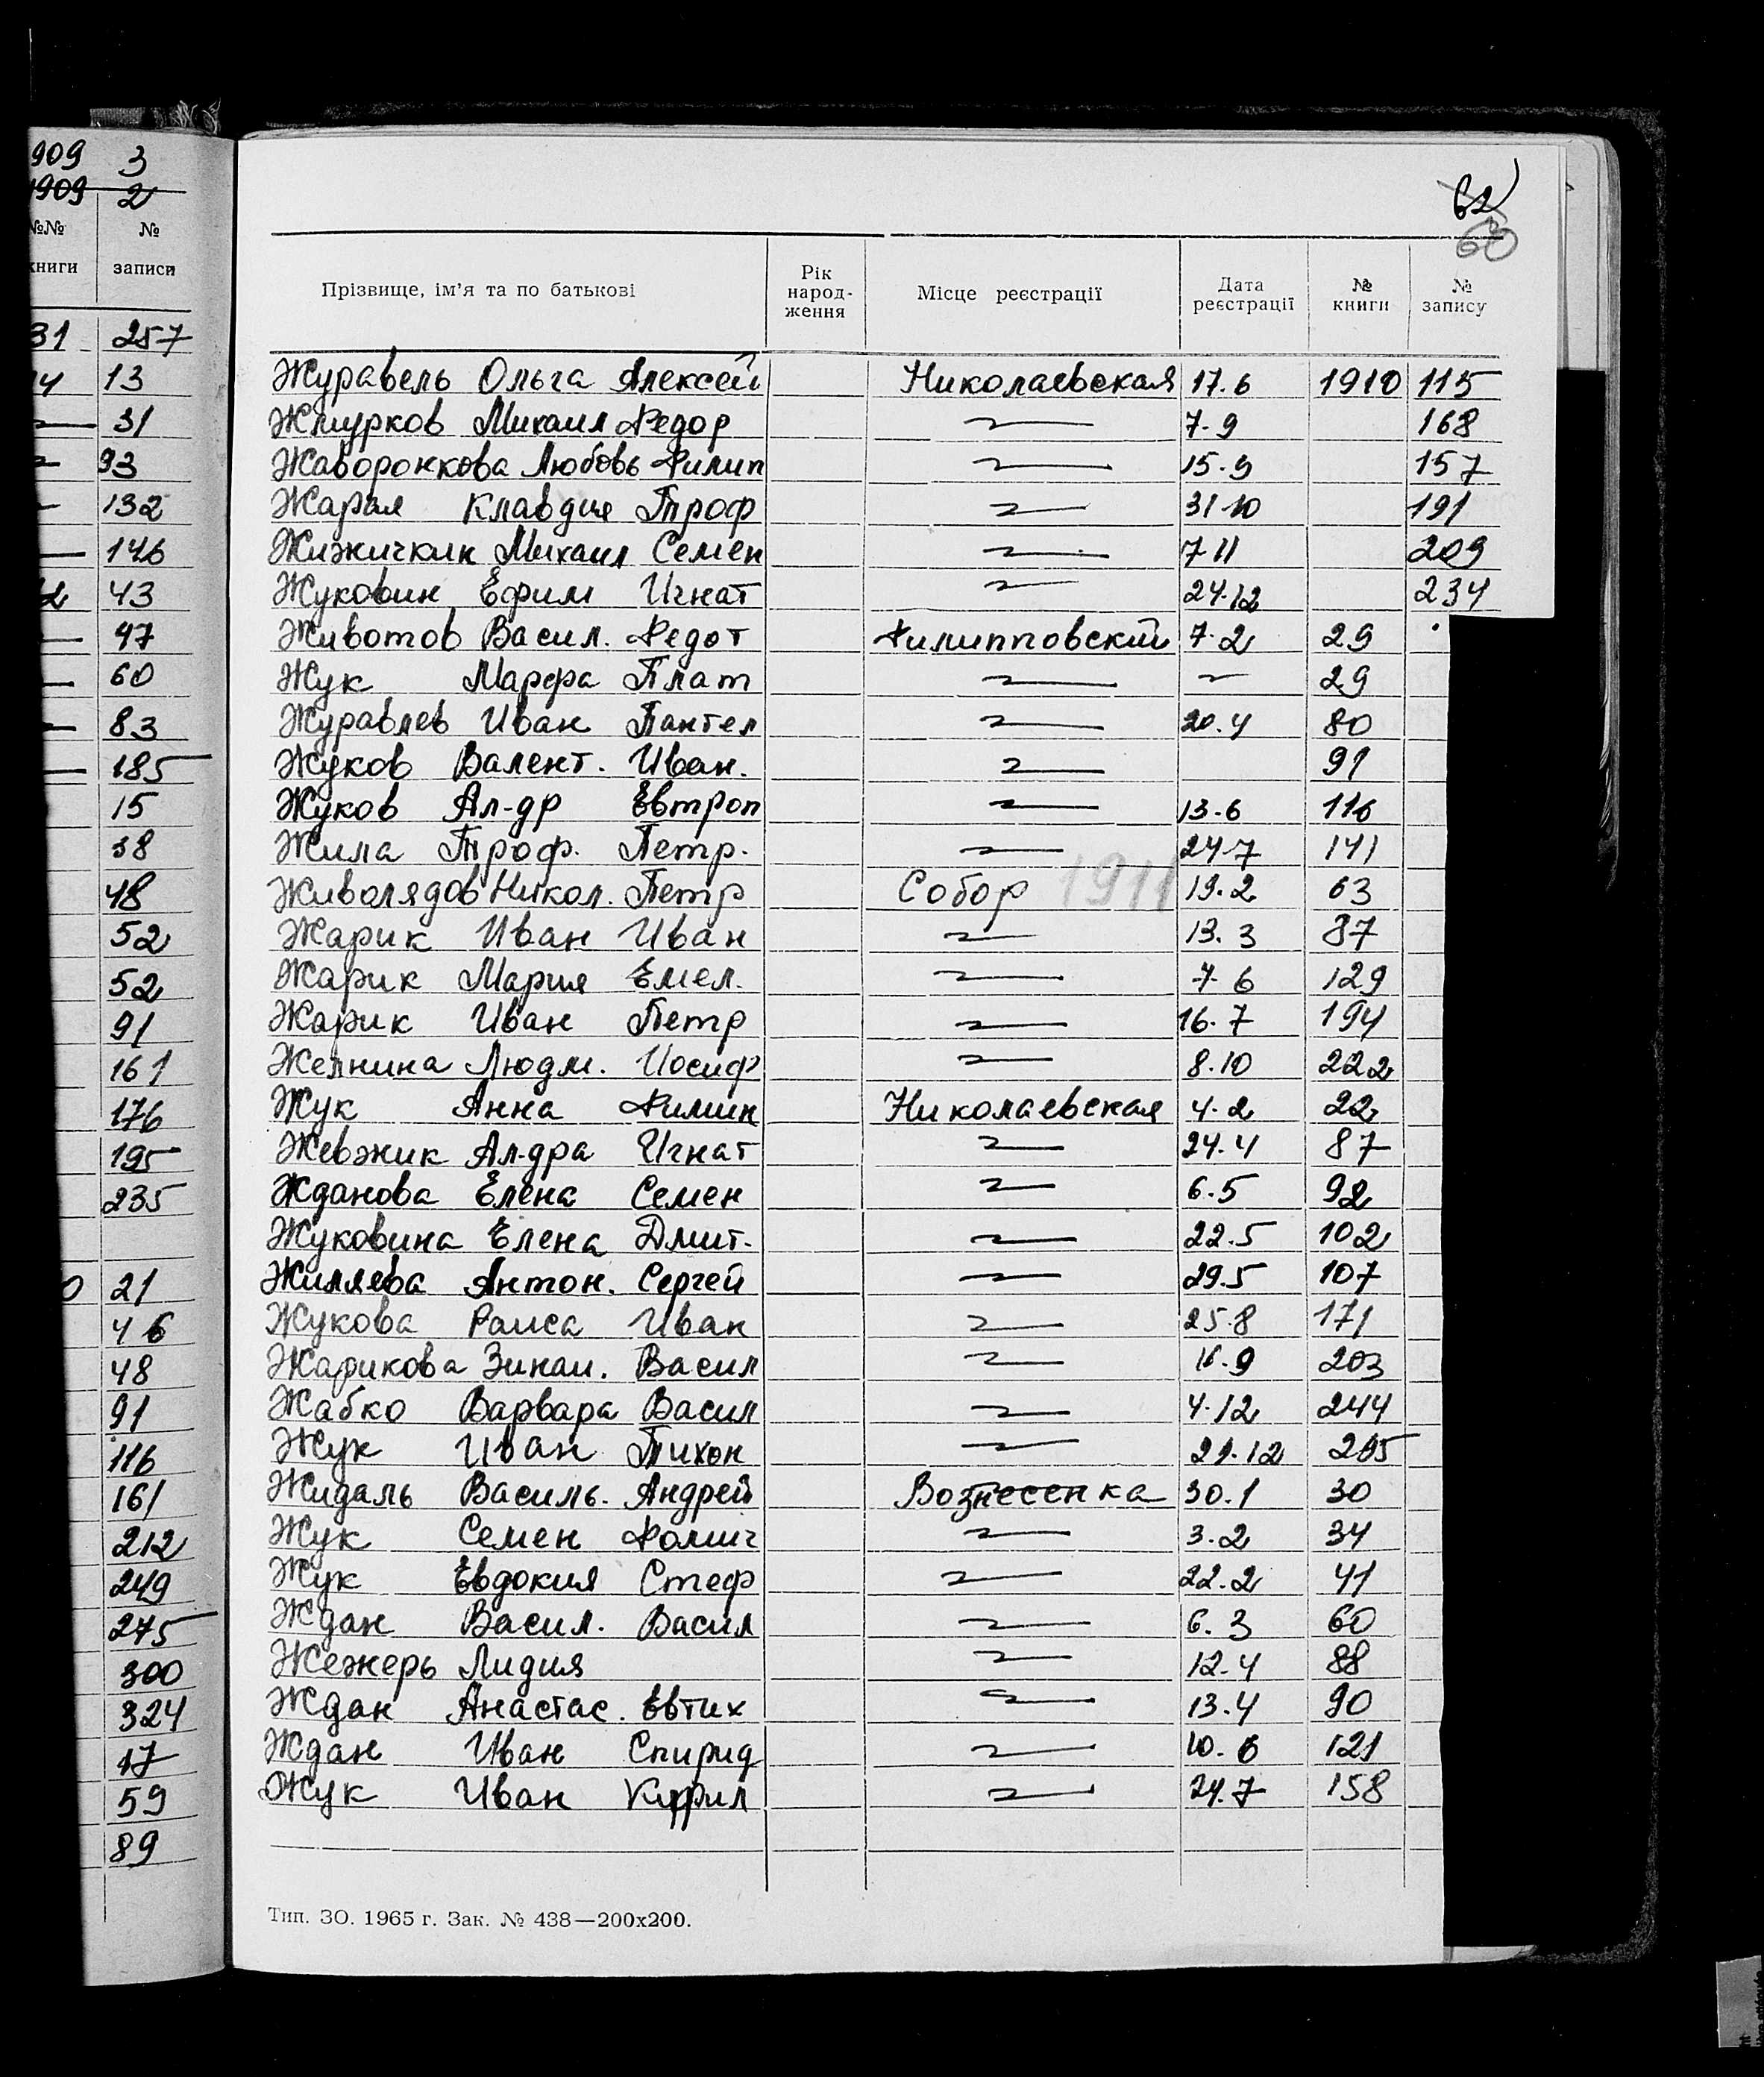 909 3
1909 2
№№ №
книги записи
31 257
14 13
31
93
132
146
43
47
60
83
185
15
38
48
52
52
91
161
176
195
235
21
46
48
91
116
161
212
249
275
300
324
17
59
89
62
63
Прізвище, ім'я та по батькові Рік народ- ження Місце реєстрації Дата реєстрації № книги № запису
Журавель Ольга Алексей Николаевская 17.6 1910 115
Жмурков Михаил Федор — 7-9 168
Жаворонкова Любовь Филип — 15.9 157
Жарая Клавдия Троф — 31-10 191
Жижичкик Михаил Семен — 7 11 209
Жуковин Ефим Игнат — 24.12 234
Животов Васил. Федот Филипповский 7.2 29
Жук Марфа Плат — — 29
Журавлев Иван Пантел — 20.4 80
Жуков Валент. Иван. — 91
Жуков Ал-др Евтроп — 13.6 116
Жила Троф. Петр. — 24-7 141
Живолядов Никол. Петр Собор 1911 19.2 63
Жарик Иван Иван — 13.3 87
Жарик Мария Емел. — 7-6 129
Жарик Иван Петр — 16.7 194
Желнина Людм. Иосиф — 8.10 222
Жук Анна Филип Николаевская 4.2 22
Жевжик Ал-дра Игнат — 24.4 87
Жданова Елена Семен — 6.5 92
Жуковина Елена Дмит. — 22.5 102
Жиляева Антон. Сергей — 29.5 107
Жукова Раиса Иван — 25.8 171
Жарикова Зинаи. Васил — 16.9 203
Жабко Варвара Васил — 4.12 244
Жук Иван Тихон — 29.12 265
Жидаль Василь. Андрей Вознесенка 30.1 30
Жук Семен Фомич — 3.2 34
Жук Евдокия Стеф — 22.2 41
Ждан Васил. Васил — 6.3 60
Жежерь Лидия — 12.4 88
Ждан Анастас. Евтих — 13.4 90
Ждан Иван Спирид — 10.6 121
Жук Иван Кирил — 24.7 158
Тип. ЗО. 1965 г. Зак. № 438—200x200.